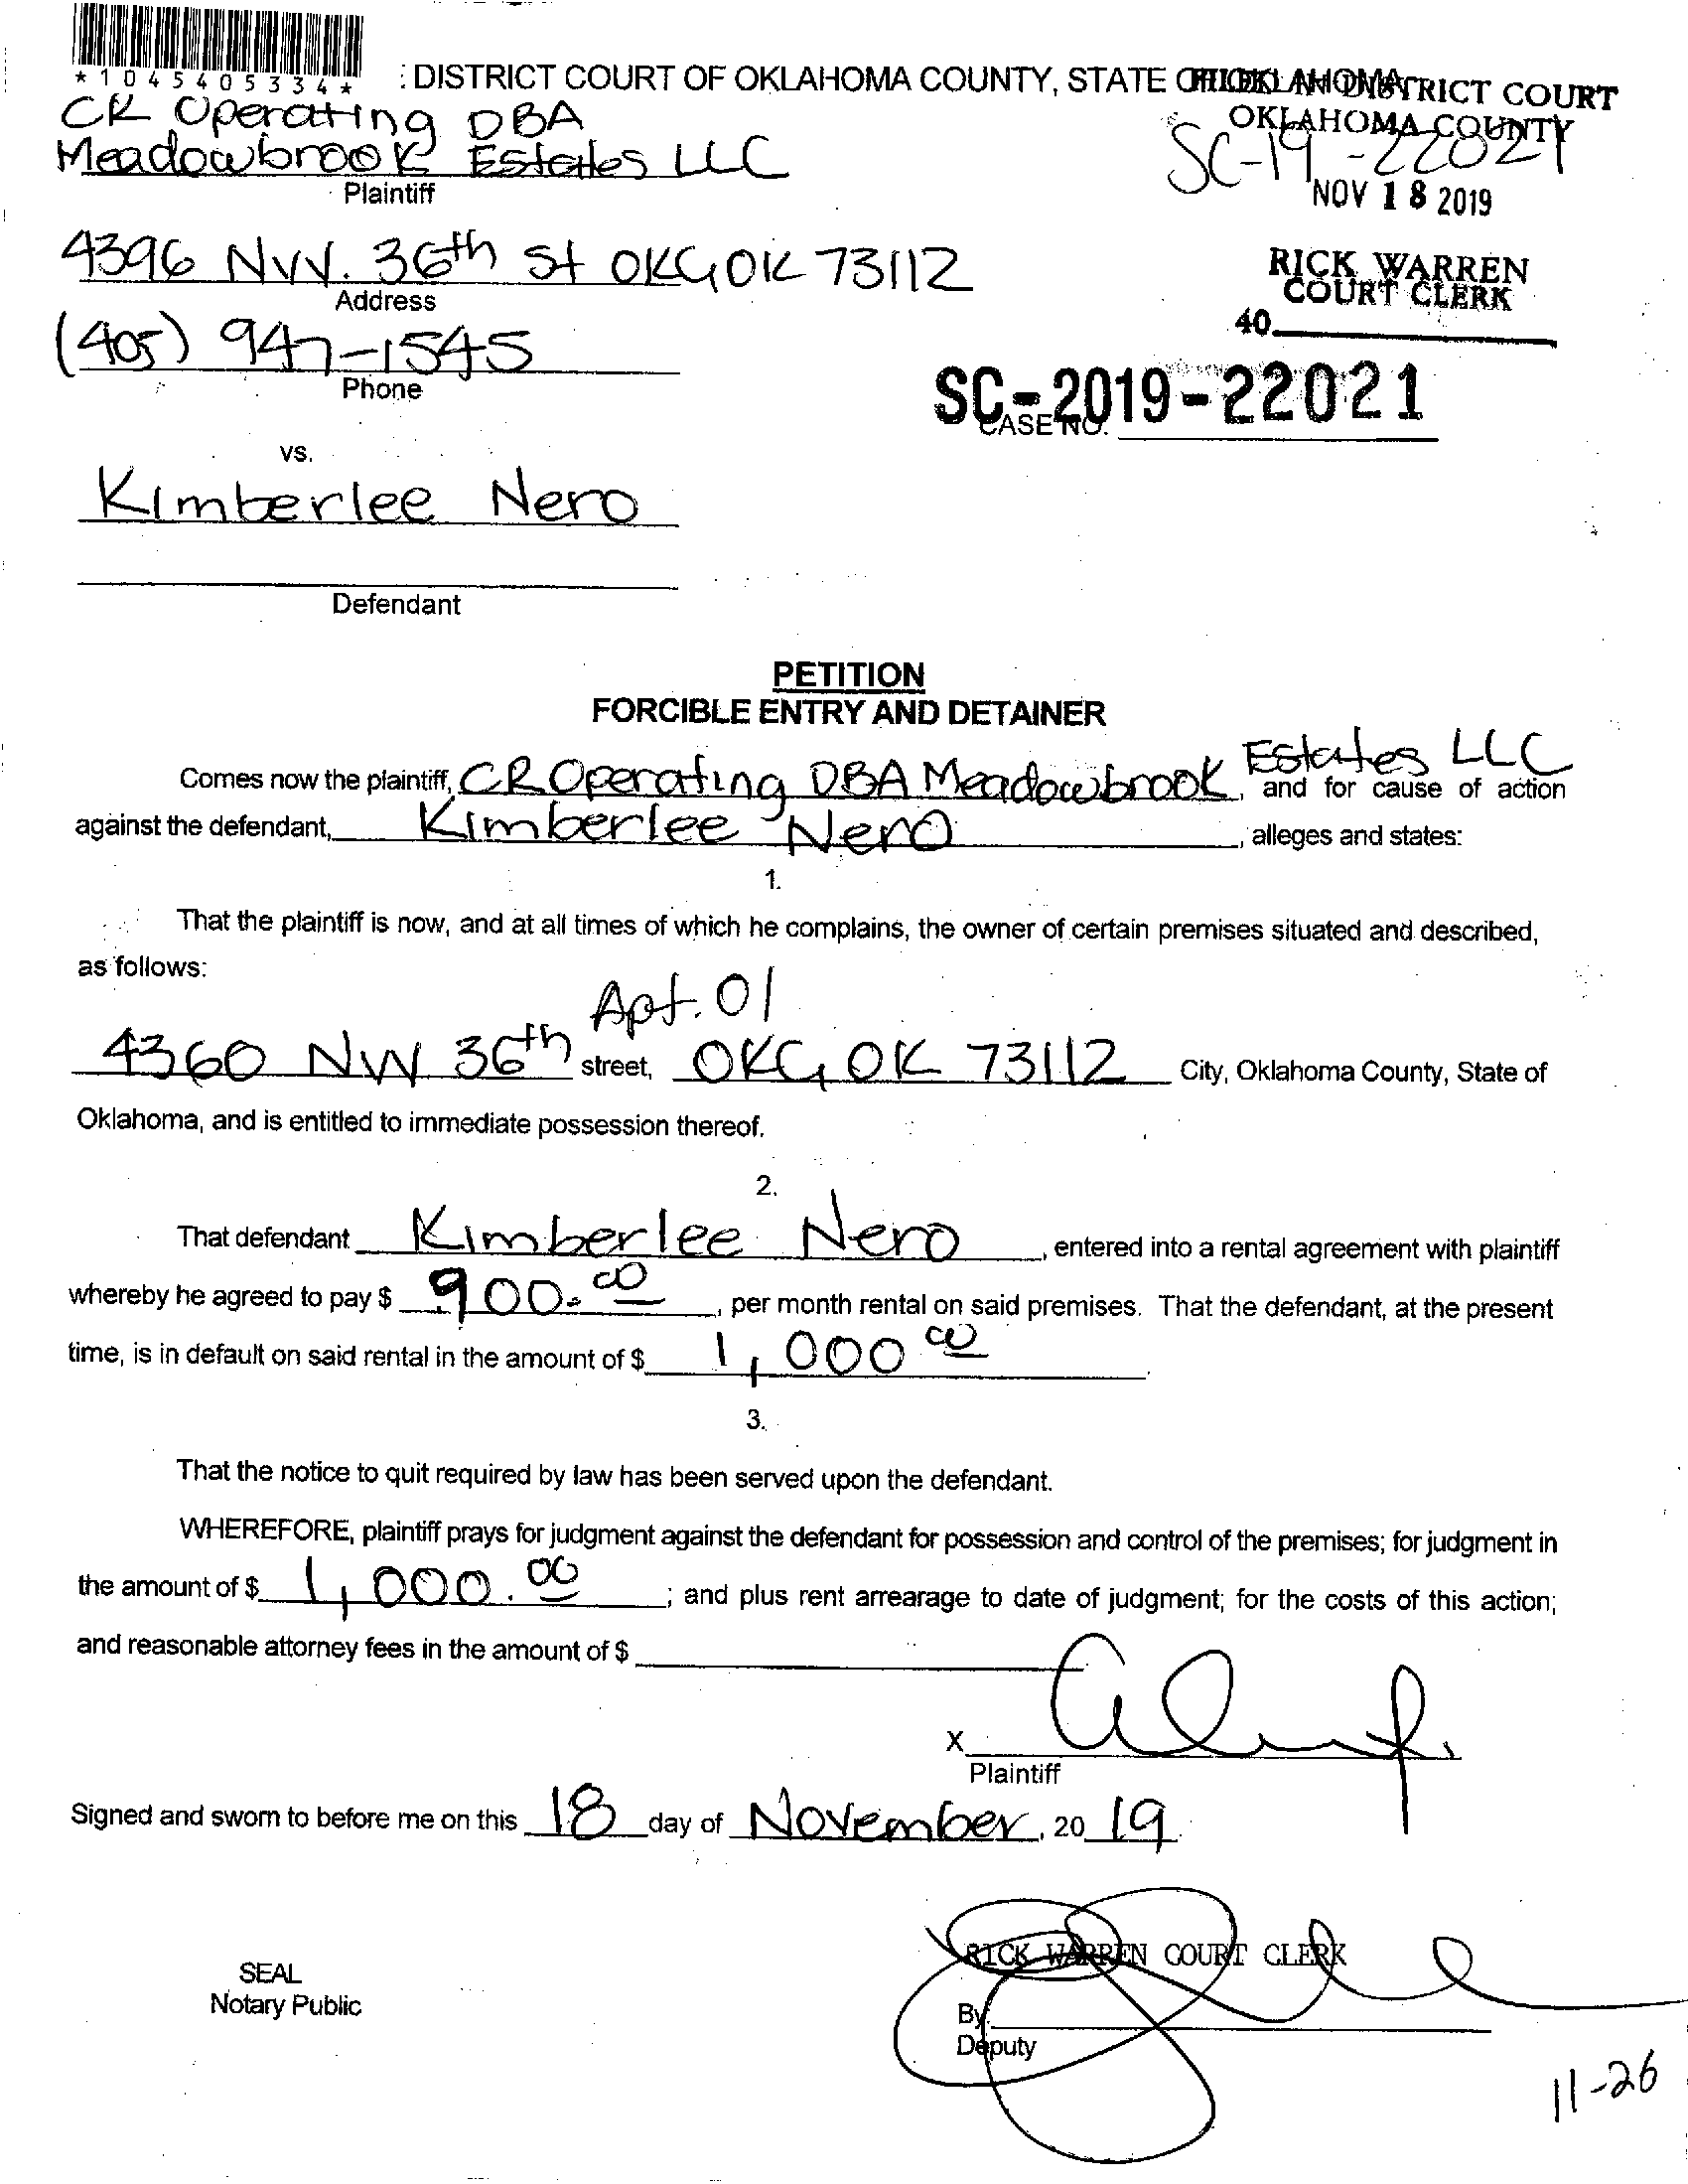 *1045405334*
: DISTRICT COURT OF OKLAHOMA COUNTY, STATE OF OKLAHOMA
FILED IN DISTRICT COURT
OKLAHOMA COUNTY
CR Operating DBA
Meadowbrook Estates LLC
SC-19-22021
Plaintiff
NOV 18 2019
4396 NW. 36th St OKC, OK 73112
Address
RICK WARREN
COURT CLERK
40
(405) 947-1545
Phone
SC-2019-22021
CASE NO.
vs.
Kimberlee Nero
Defendant
PETITION
FORCIBLE ENTRY AND DETAINER
Comes now the plaintiff, CR Operating DBA Meadowbrook Estates LLC, and for cause of action
against the defendant, Kimberlee Nero, alleges and states:
1.
That the plaintiff is now, and at all times of which he complains, the owner of certain premises situated and described,
as follows:
Apt. 01
4360 NW 36th street, OKC, OK 73112 City, Oklahoma County, State of
Oklahoma, and is entitled to immediate possession thereof.
2.
That defendant Kimberlee Nero, entered into a rental agreement with plaintiff
whereby he agreed to pay $ 900.00, per month rental on said premises. That the defendant, at the present
time, is in default on said rental in the amount of $ 1,000 00.
3.
That the notice to quit required by law has been served upon the defendant.
WHEREFORE, plaintiff prays for judgment against the defendant for possession and control of the premises; for judgment in
the amount of $ 1,000.00; and plus rent arrearage to date of judgment; for the costs of this action;
and reasonable attorney fees in the amount of $
X
Plaintiff
Signed and sworn to before me on this 18 day of November, 20 19
RICK WARREN COURT CLERK
SEAL
Notary Public
By:
Deputy
11-26